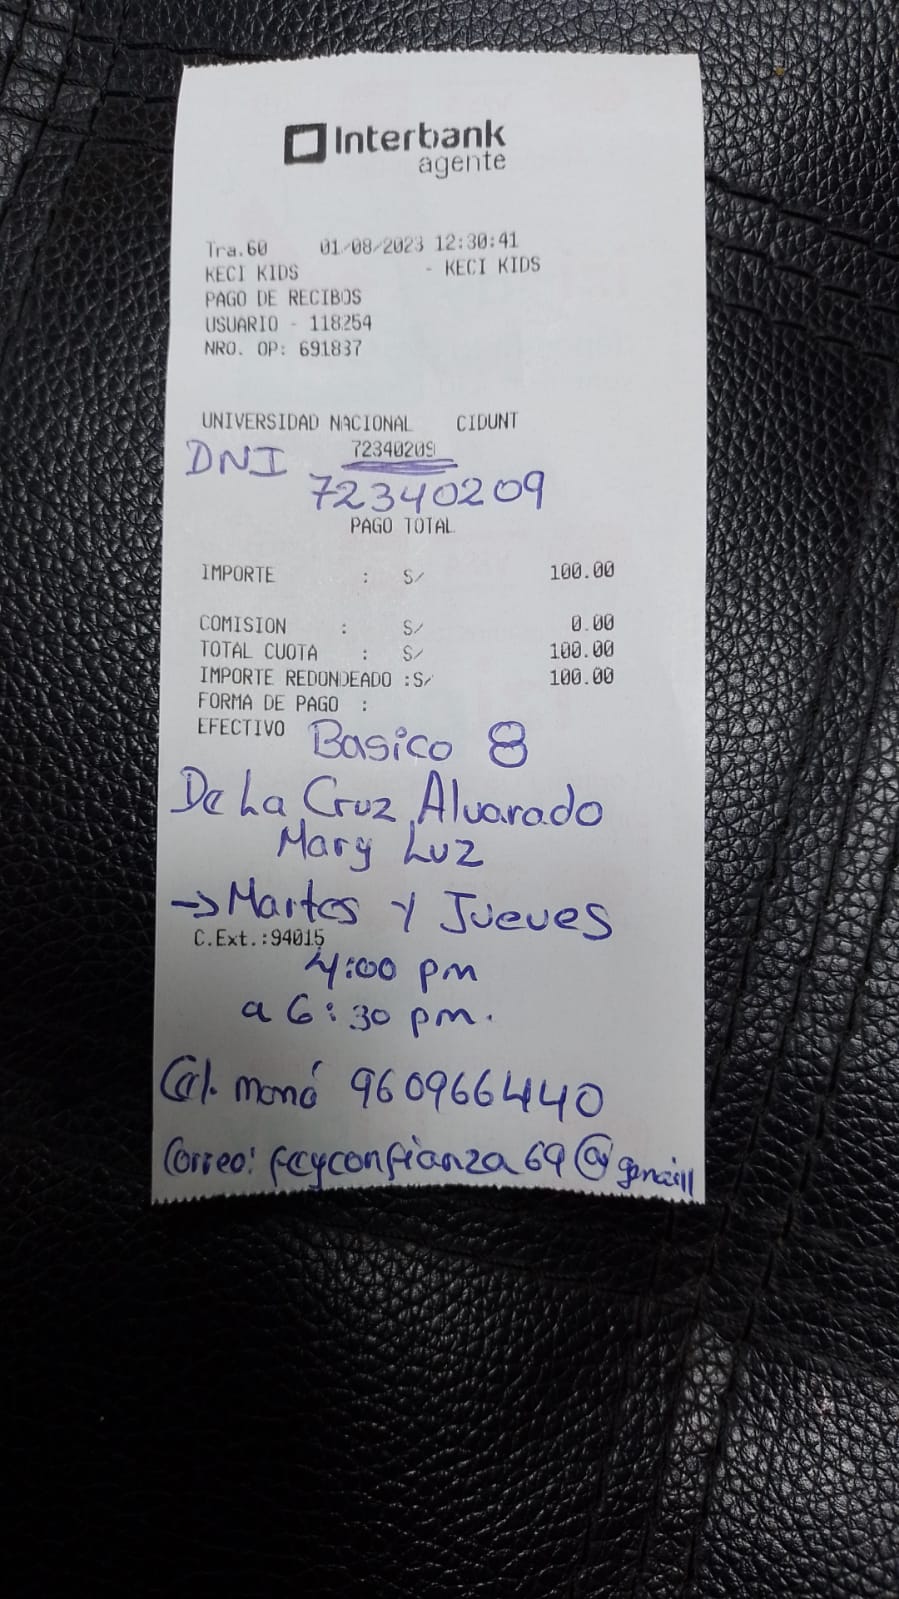 Interbank
agente
Tra.60 01/08/2023 12:30:41
KECI KIDS - KECI KIDS
PAGO DE RECIBOS
USUARIO - 118254
NRO. OP: 691837
UNIVERSIDAD NACIONAL CIDUNT
DNI 72340209
72340209
PAGO TOTAL
IMPORTE : S/ 100.00
COMISION : S/ 0.00
TOTAL CUOTA : S/ 100.00
IMPORTE REDONDEADO :S/ 100.00
FORMA DE PAGO :
EFECTIVO Basico 8
De La Cruz Alvarado
Mary Luz
→ Martes y Jueves
C.Ext.:94015
4:00 pm
a 6:30 pm.
Cel. mamá 960966440
Correo: feyconfianza69@gmail